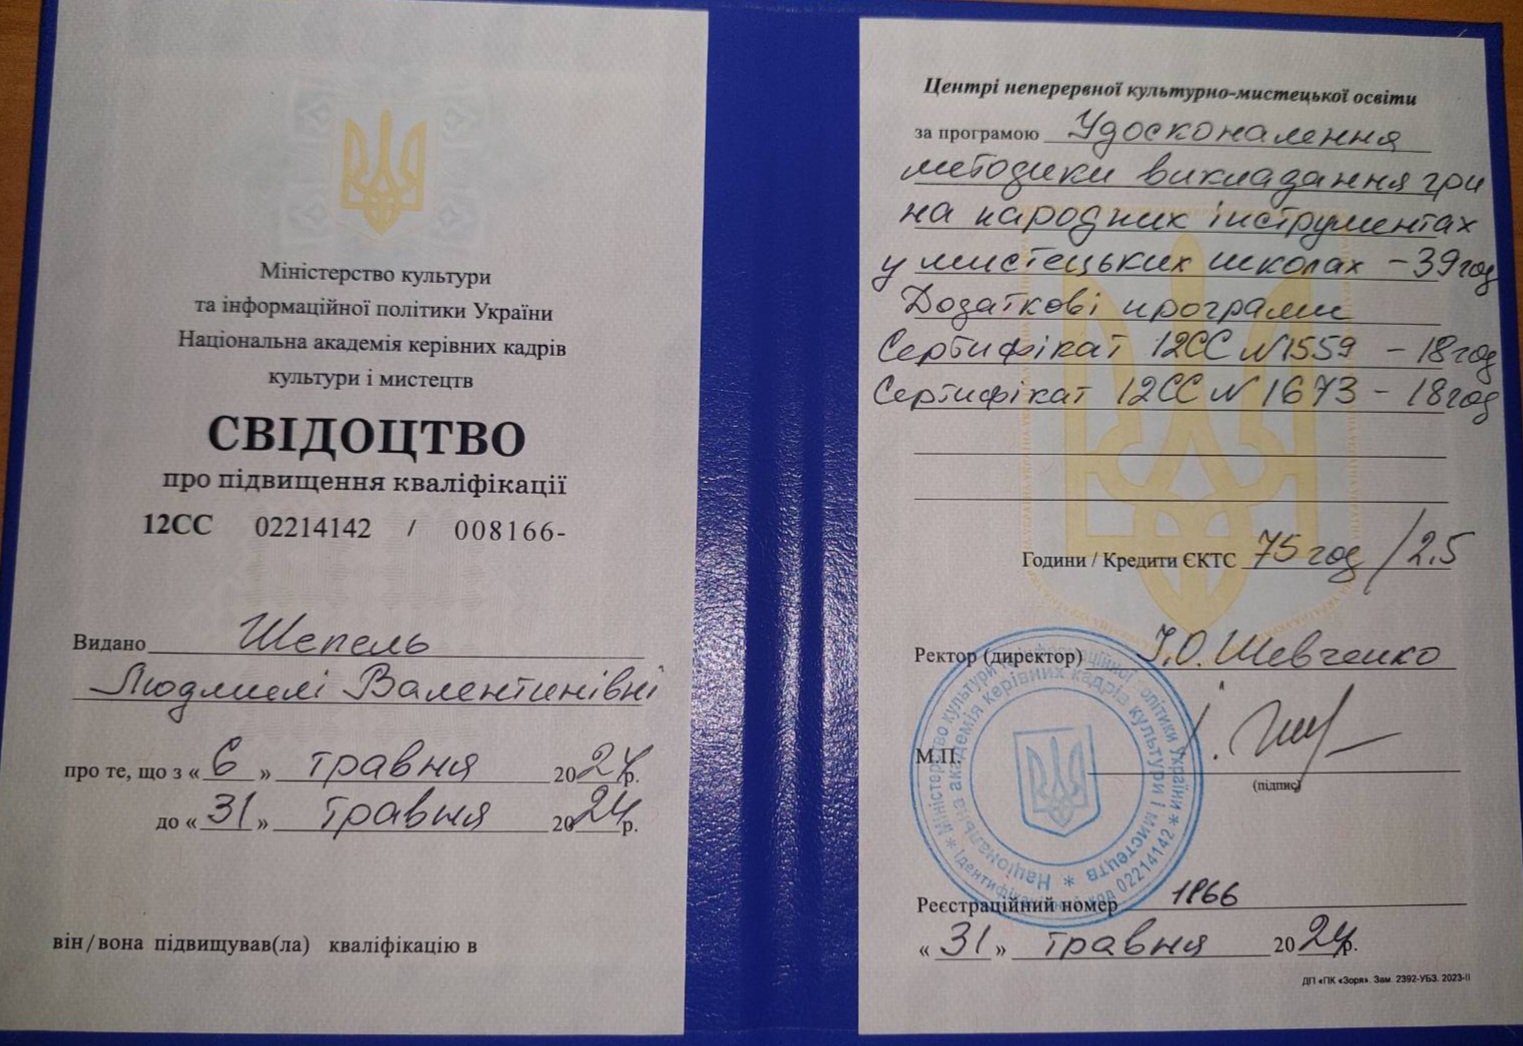 Міністерство культури
та інформаційної політики України
Національна академія керівних кадрів
культури і мистецтв
СВІДОЦТВО
про підвищення кваліфікації
12СС 02214142 / 008166-
Видано Шепель
Людмилі Валентинівні
про те, що з «6» травня 2024р.
до «31» травня 2024р.
він/вона підвищував(ла) кваліфікацію в
Центрі неперервної культурно-мистецької освіти
за програмою Удосконалення
методики викладання гри
на народних інструментах
у мистецьких школах - 39год
Додаткові програми
Сертифікат 12СС N1559 - 18год
Сертифікат 12СС N1673 - 18год
Години / Кредити ЄКТС 75 год / 2.5
Ректор (директор) І.О. Шевченко
М.П.
(підпис)
Міністерство культури та інформаційної політики України * Ідентифікаційний код 02214142 *
Національна академія керівних кадрів культури і мистецтв *
Реєстраційний номер 1866
«31» травня 2024р.
ДП «ПК «Зоря». Зам. 2392-УБЗ. 2023-ІІ